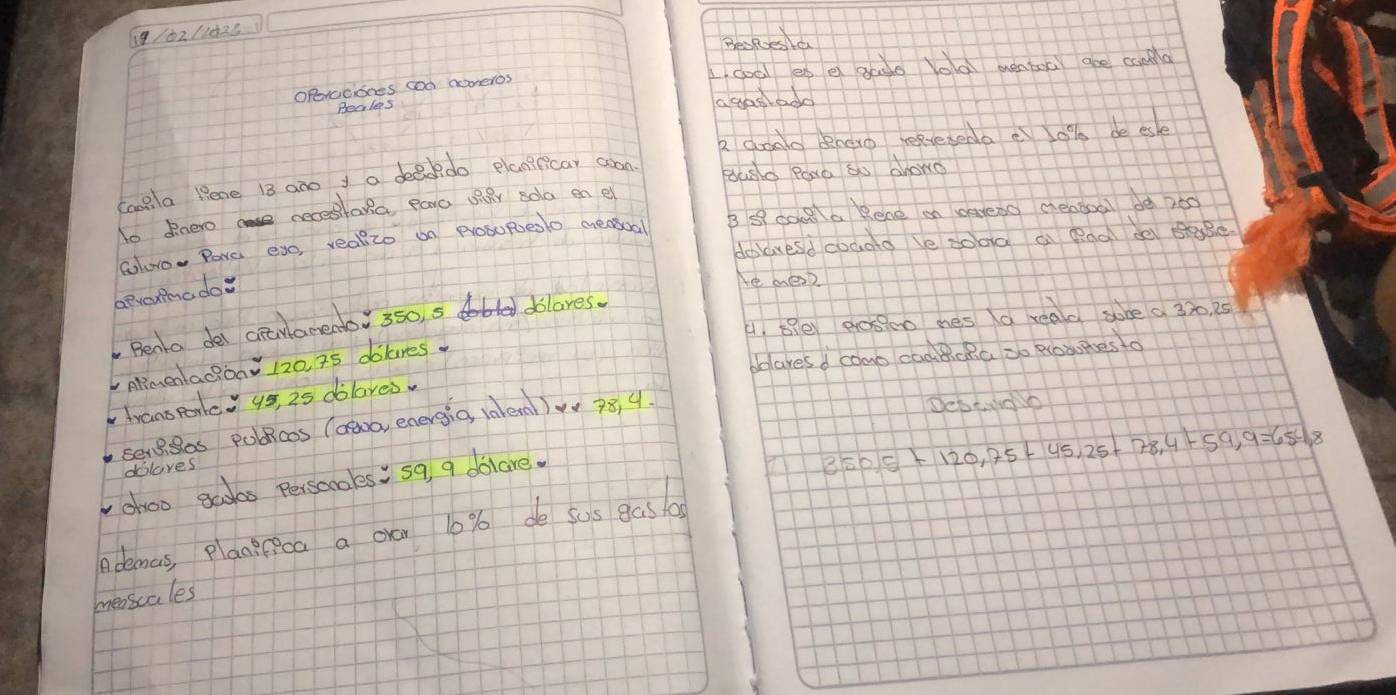 19/02/2025
Operaciones con numeros
Reales
Camila tiene 13 año y a decidido planificar cuan-
to dinero necesitaria para vivir sola en el
futuro. Para eso, realizo un prosupuesto mensual
aproximado:
Renta del apartamento: 350,5 dólares.
Alimentación: 120,75 dólares.
transporte: 45,25 dólares.
servisios publicos (agua, energia, internt): 78,4.
dólares
otros gastos personales: 59,9 dólare.
Ademas, planifica a orar 10% de sus gastos
mensuales
Respuesta
1. cual es el gasto total mensual que camila
a gastado
2 cuanto dinero representa el 10% de este
gasto para su ahorro
3 si camila tiene un ingreso mensual de 700
dolares¿ cuanto le sobra al final del
mes?
4. si el prosimo mes la renta sube a 370,25
dolares¿ como cambiaria su prosupuesto
Desarrollo
350,5 + 120,75 + 45,25 + 78,4 + 59,9 = 654,8